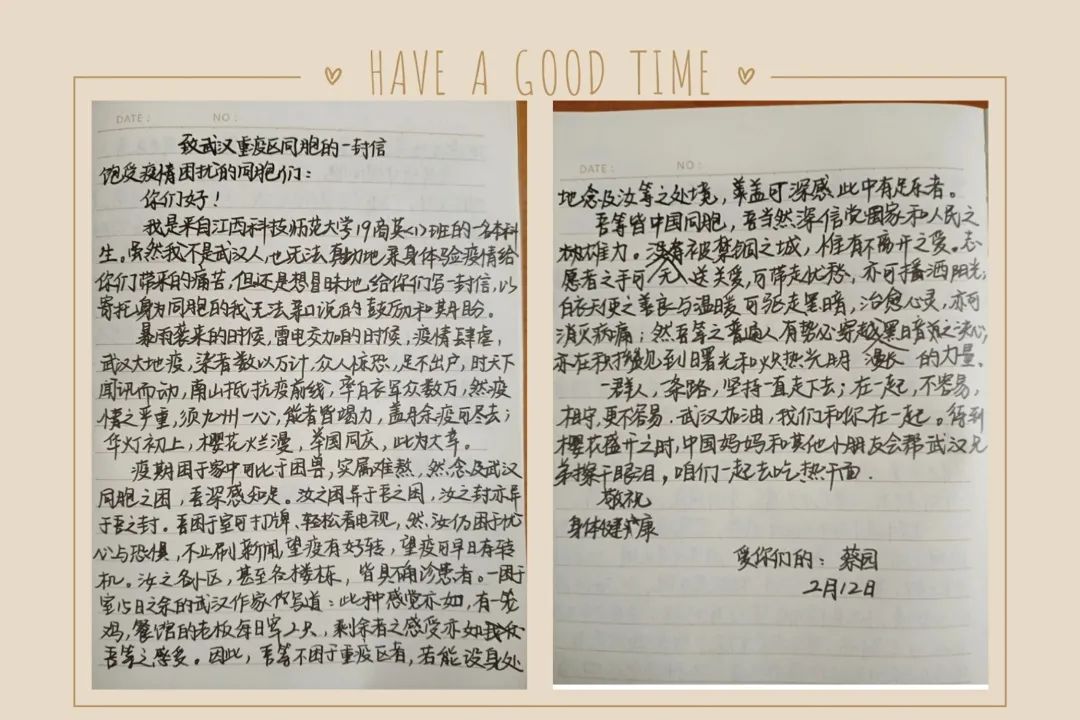 HAVE A GOOD TIME
DATE: NO:
致武汉重疫区同胞的一封信
饱受疫情困扰的同胞们：
你们好！
我是来自江西科技师范大学19商英<1>班的一名本科
生。虽然我不是武汉人，也无法真切地亲身体验疫情给
你们带来的痛苦，但还是想冒昧地给你们写一封信，以
寄托身为同胞的我无法亲口说的鼓励和期盼。
暴雨袭来的时候，雷电交加的时候，疫情肆虐，
武汉大地疫，染者数以万计，众人惊恐，足不出户，时天下
闻讯而动，南山抵抗疫前线，率白衣军众数万，然疫
情之严重，须九州一心，能者皆竭力，盖月余疫可尽去；
华灯初上，樱花烂漫，举国同庆，此为大幸。
疫期困于家中可比于困兽，实属难熬，然念及武汉
同胞之困，吾深感知足。汝之困异于吾之困，汝之封亦异
于吾之封。吾困于室可打牌、轻松看电视，然，汝仍困于忧
心与恐惧，不止刷新闻，望疫有好转，望疫可早日有转
机。汝之各小区，甚至各楼栋，皆具确诊患者。一困于
室15日之余的武汉作家写道：此种感觉亦如，有一笼
鸡，餐馆的老板每日宰2只，剩余者之感受亦如
吾等之感受。因此，吾等不困于重疫区者，若能设身处
DATE: NO:
地念及汝等之处境，盖可深感此中有足乐者。
吾等皆中国同胞，吾当然深信党国家和人民之
雄力。没有被禁锢之城，惟有不离开之爱。志
愿者之手可 送关爱，可带走忧愁，亦可播洒阳光；
白衣天使之善良与温暖可驱走黑暗，治愈心灵，亦可
消灭病痛；然吾等之普通人有势必穿越黑暗之决心，
亦在积极遇见到曙光和火热光明 的力量。
一群人，一条路，坚持一直走下去；在一起，不容易，
相守，更不容易。武汉加油，我们和你在一起。待到
樱花盛开之时，中国妈妈和其他小朋友会帮武汉兄
弟擦干眼泪，咱们一起去吃热干面。
敬祝
身体健康
爱你们的：蔡园
2月12日